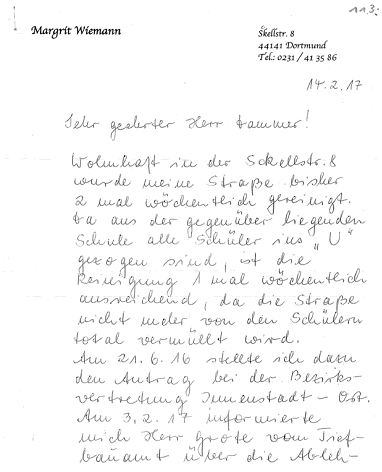 113.
Margrit Wiemann
Skellstr. 8
44141 Dortmund
Tel.: 0231 / 41 35 86
14.2.17
Sehr geehrter Herr
Wohnhaft in der Sckellstr. 8
wurde meine Straße bisher
2 mal wöchentlich gereinigt.
Da aus der gegenüber liegenden
Schule alle Schüler ins „U"
gezogen sind, ist die
Reinigung 1 mal wöchentlich
ausreichend, da die Straße
nicht mehr von den Schülern
total vermüllt wird.
Am 21.6.16 stellte ich dazu
den Antrag bei der Bezirks-
vertretung Innenstadt - Ost.
Am 3.2.17 informierte
mich Herr Grote vom Tief-
bauamt über die Ableh-